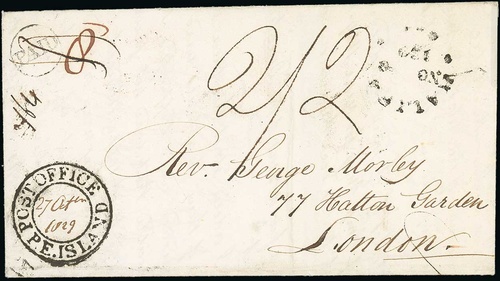 PAID
8
2/2
POST OFFICE
P.E. ISLAND
1829
Rev. George Morley
77 Hatton Garden
London